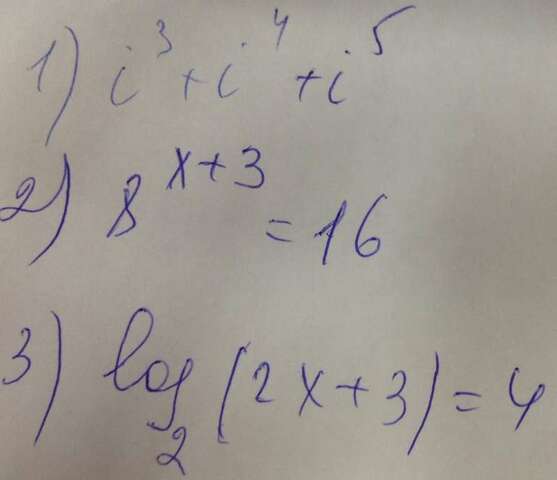 1) i³ + i⁴ + i⁵
2) 8^{x+3} = 16
3) log₂(2x+3) = 4